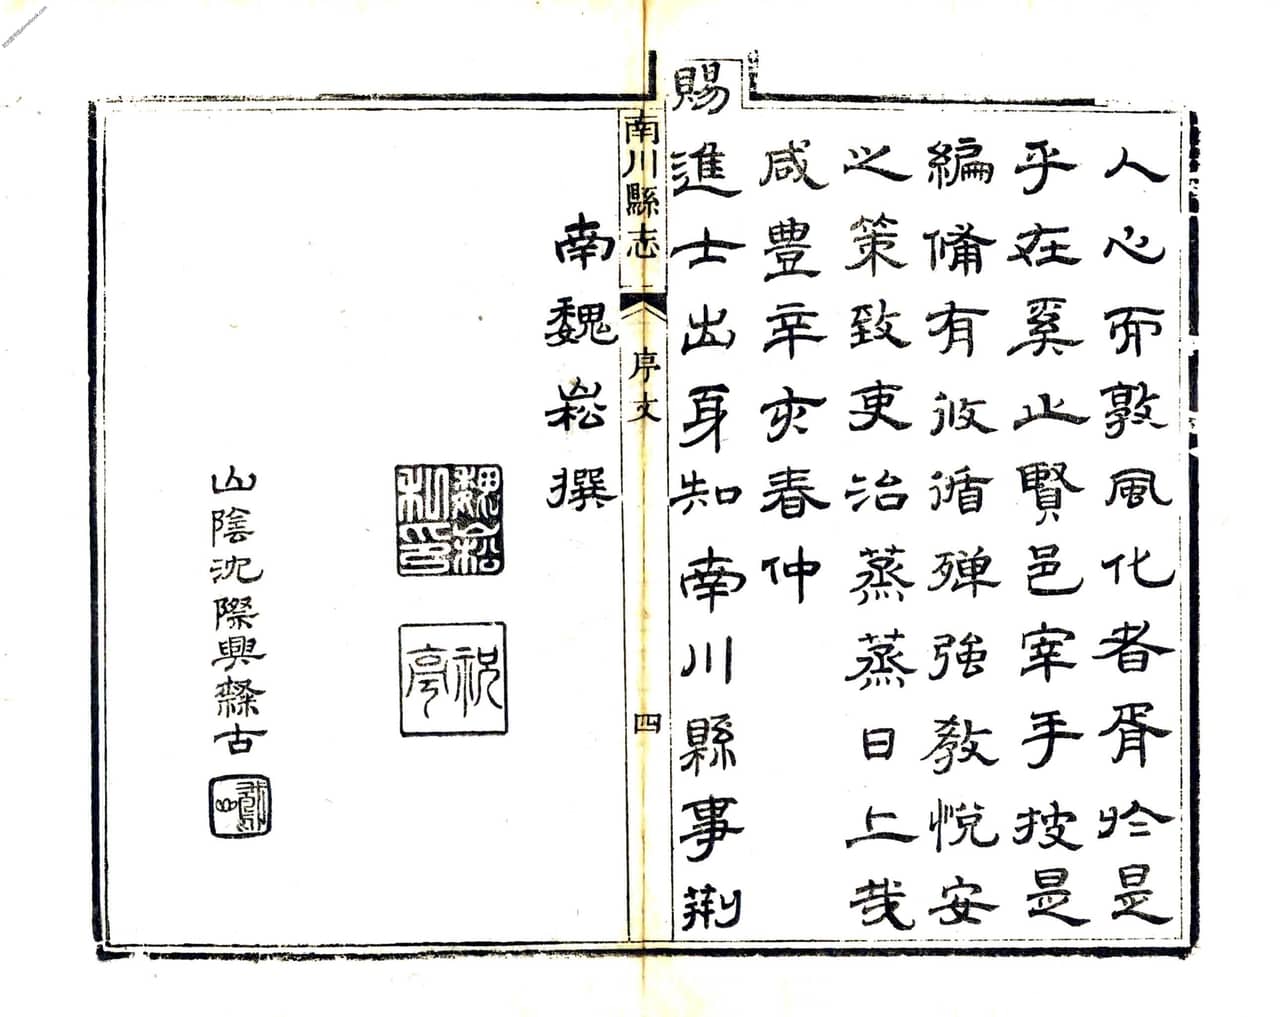 人心而敦風化者胥於是
乎在奚止賢邑宰手披是
編脩有攸循殫強敎悅安
之策致吏治蒸蒸日上哉
咸豐辛亥春仲
賜進士出身知南川縣事荆
南川縣志 序文 四
南魏崧撰
魏崧私印
祝亭
山陰沈際興隸古